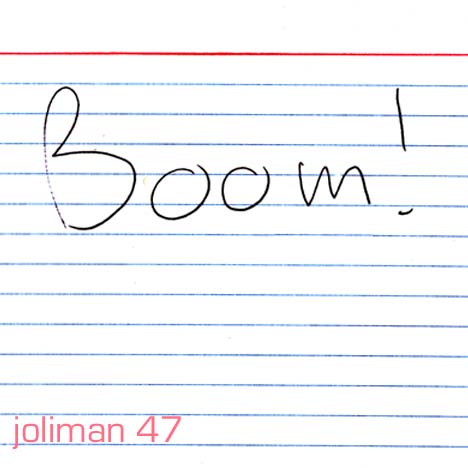 Boom!
joliman 47